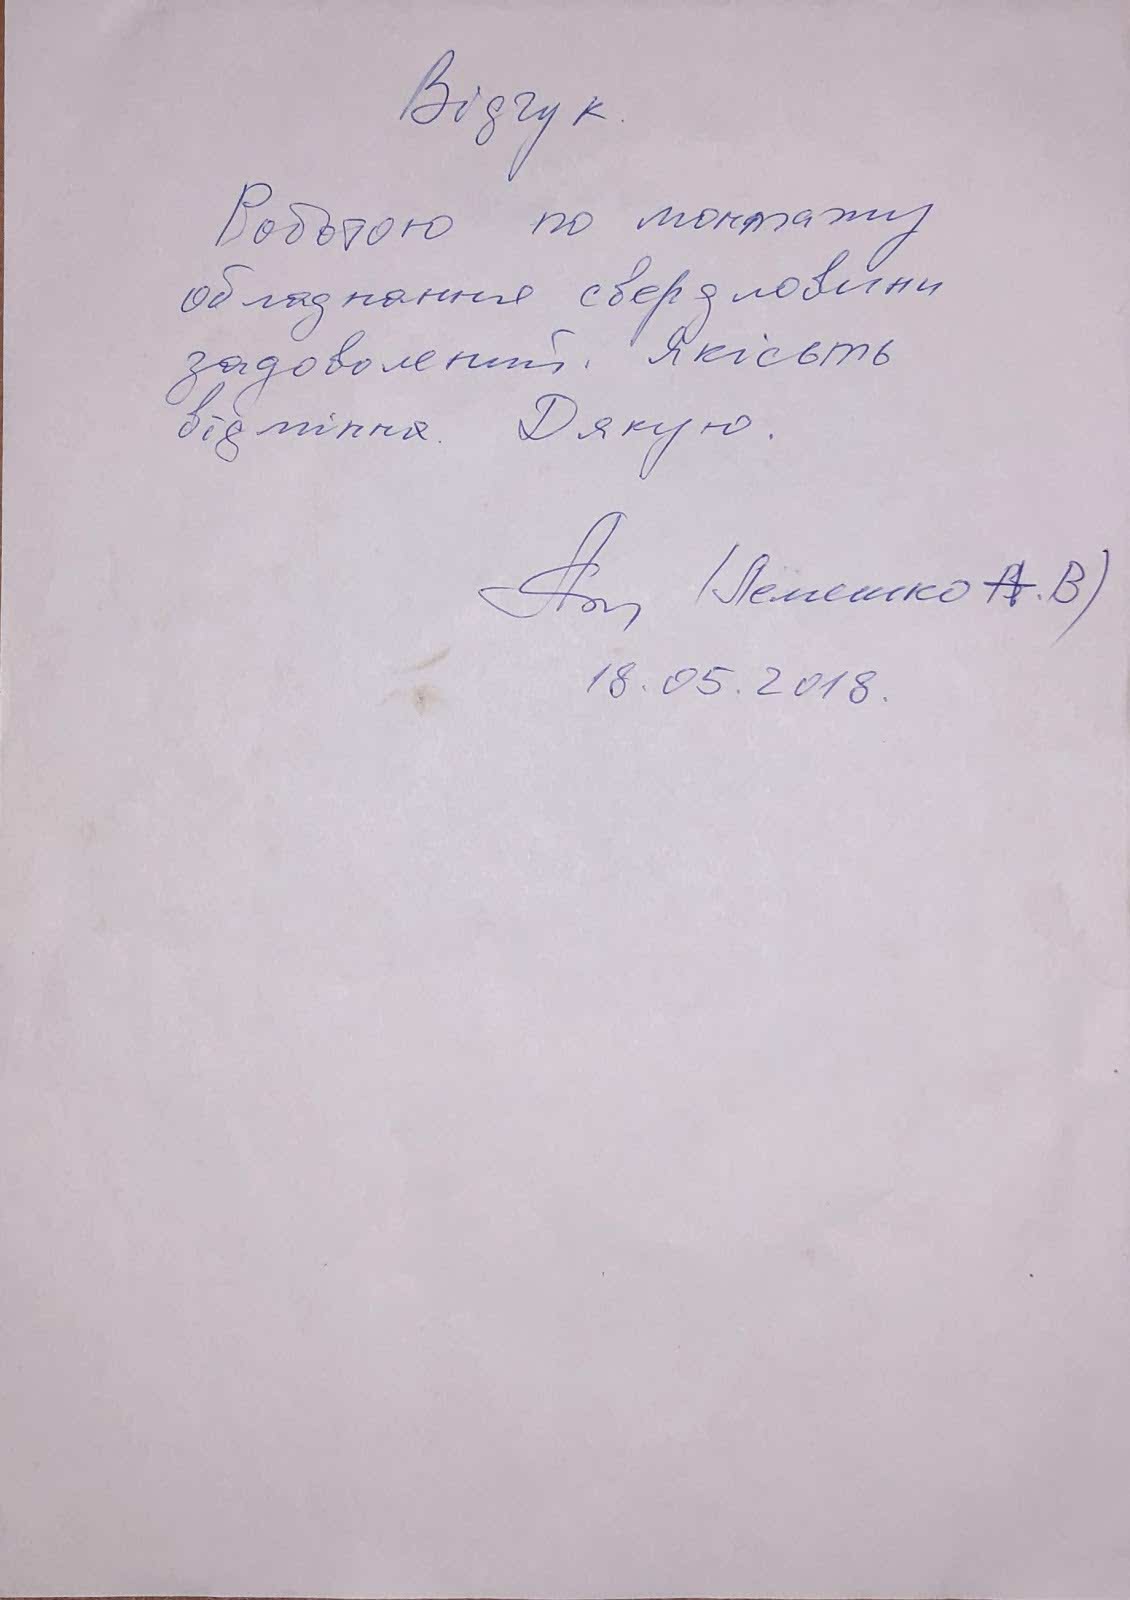 Відгук.
Роботою по монтажу
обладнання свердловини
задоволений. Якісьть
відмінна. Дякую.
(Лемешко А.В)
18.05.2018.